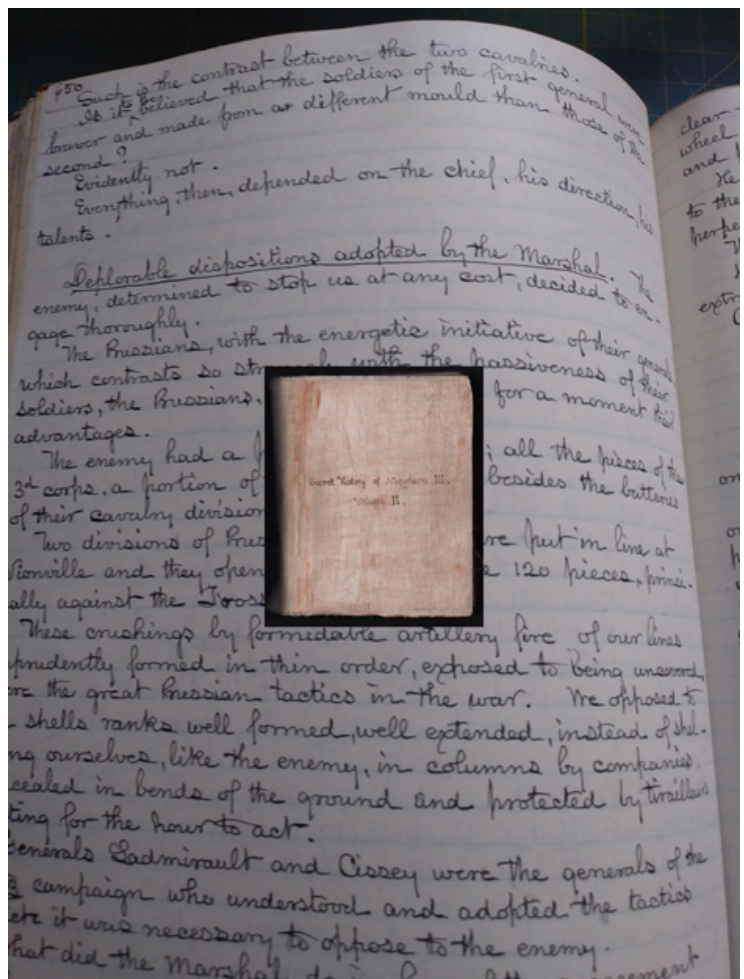 950
Such is the contrast between the two cavalries.
Is it to be believed that the soldiers of the first general were
braver and made from a different mould than those of the
second?
Evidently not.
Everything, then, depended on the chief, his direction, his
talents.
Deplorable dispositions adopted by the Marshal. The
enemy, determined to stop us at any cost, decided to en-
gage thoroughly.
The Prussians, with the energetic initiative of their generals
which contrasts so with the passiveness of their
soldiers, the Prussians, for a moment their
advantages.
The enemy had a ; all the pieces of the
3d corps, a portion of besides the batteries
of their cavalry division
Two divisions of were put in line at
Vionville and they open 120 pieces, princi-
ally against the
These crushings by formidable artillery fire of our lines
prudently formed in thin order, exposed to being
the great Prussian tactics in the war. We opposed to
shells ranks well formed, well extended, instead of shel-
ng ourselves, like the enemy, in columns by companies,
cealed in bends of the ground and protected by tirailleurs
ting for the hour to act.
Generals Ladmirault and Cissey were the generals of the
campaign who understood and adopted the tactics
it was necessary to oppose to the enemy.
hat did the Marshal
Secret History of Napoleon III.
Volume II.
clear
wheel
and
He
to the
extr